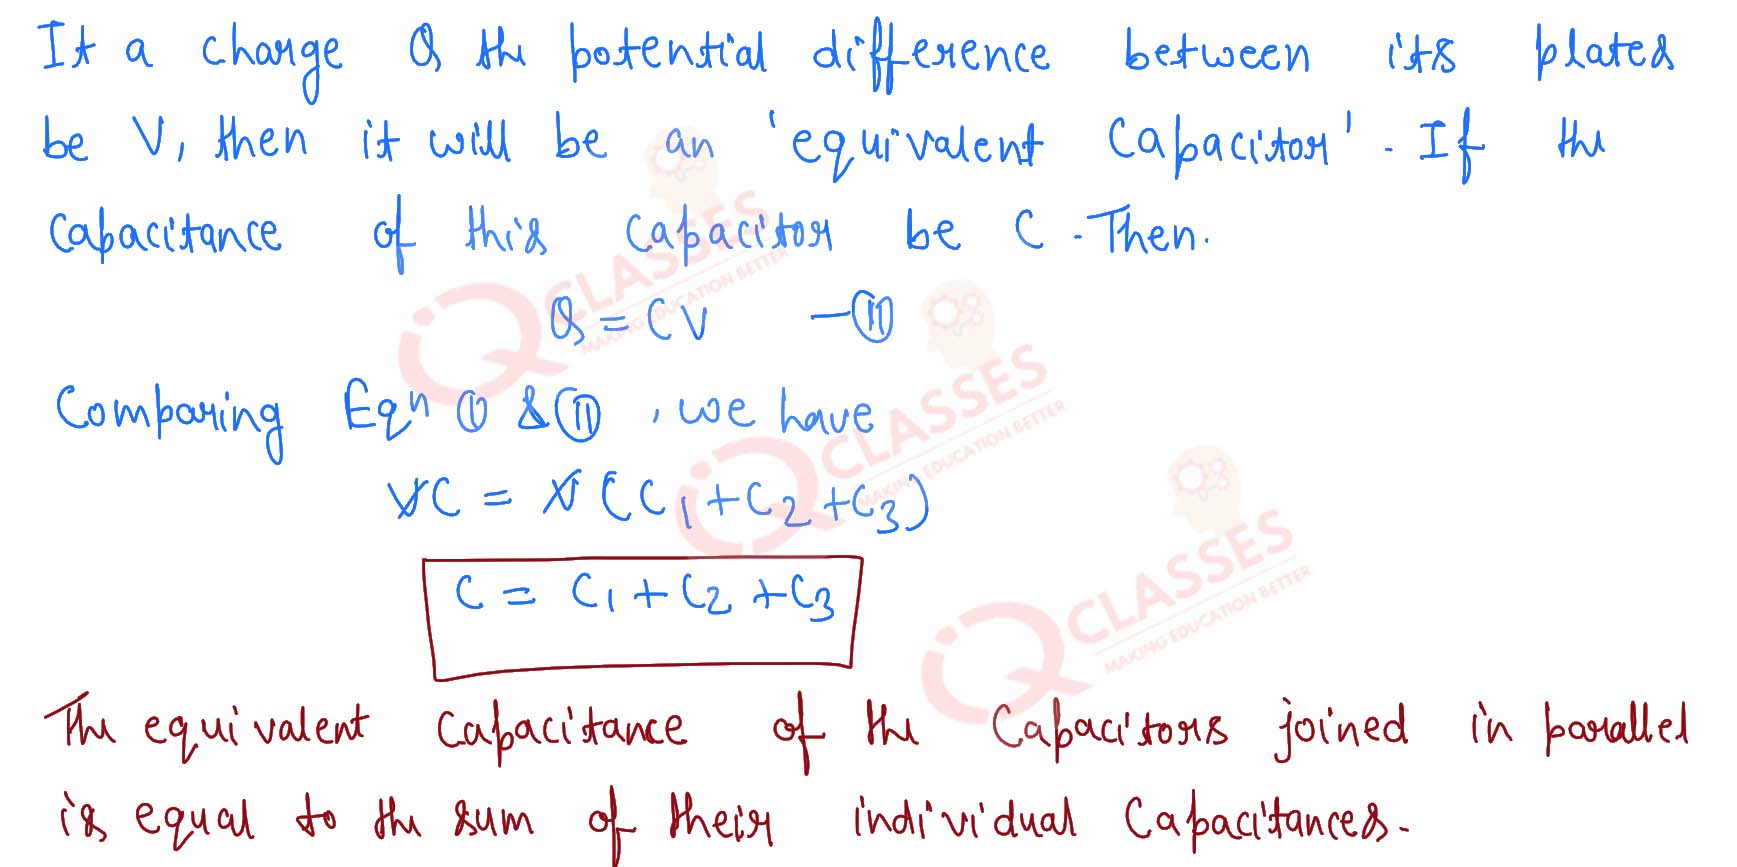 It a charge Q the potential difference between its plates
be V, then it will be an 'equivalent Capacitor'. If the
Capacitance of this Capacitor be C. Then.
Q = CV —(II)
Comparing Eqn (I) & (II), we have
VC = V (C1+C2+C3)
C = C1+C2+C3
The equivalent Capacitance of the Capacitors joined in parallel
is equal to the sum of their individual Capacitances.
iQ CLASSES
MAKING EDUCATION BETTER
iQ CLASSES
MAKING EDUCATION BETTER
iQ CLASSES
MAKING EDUCATION BETTER